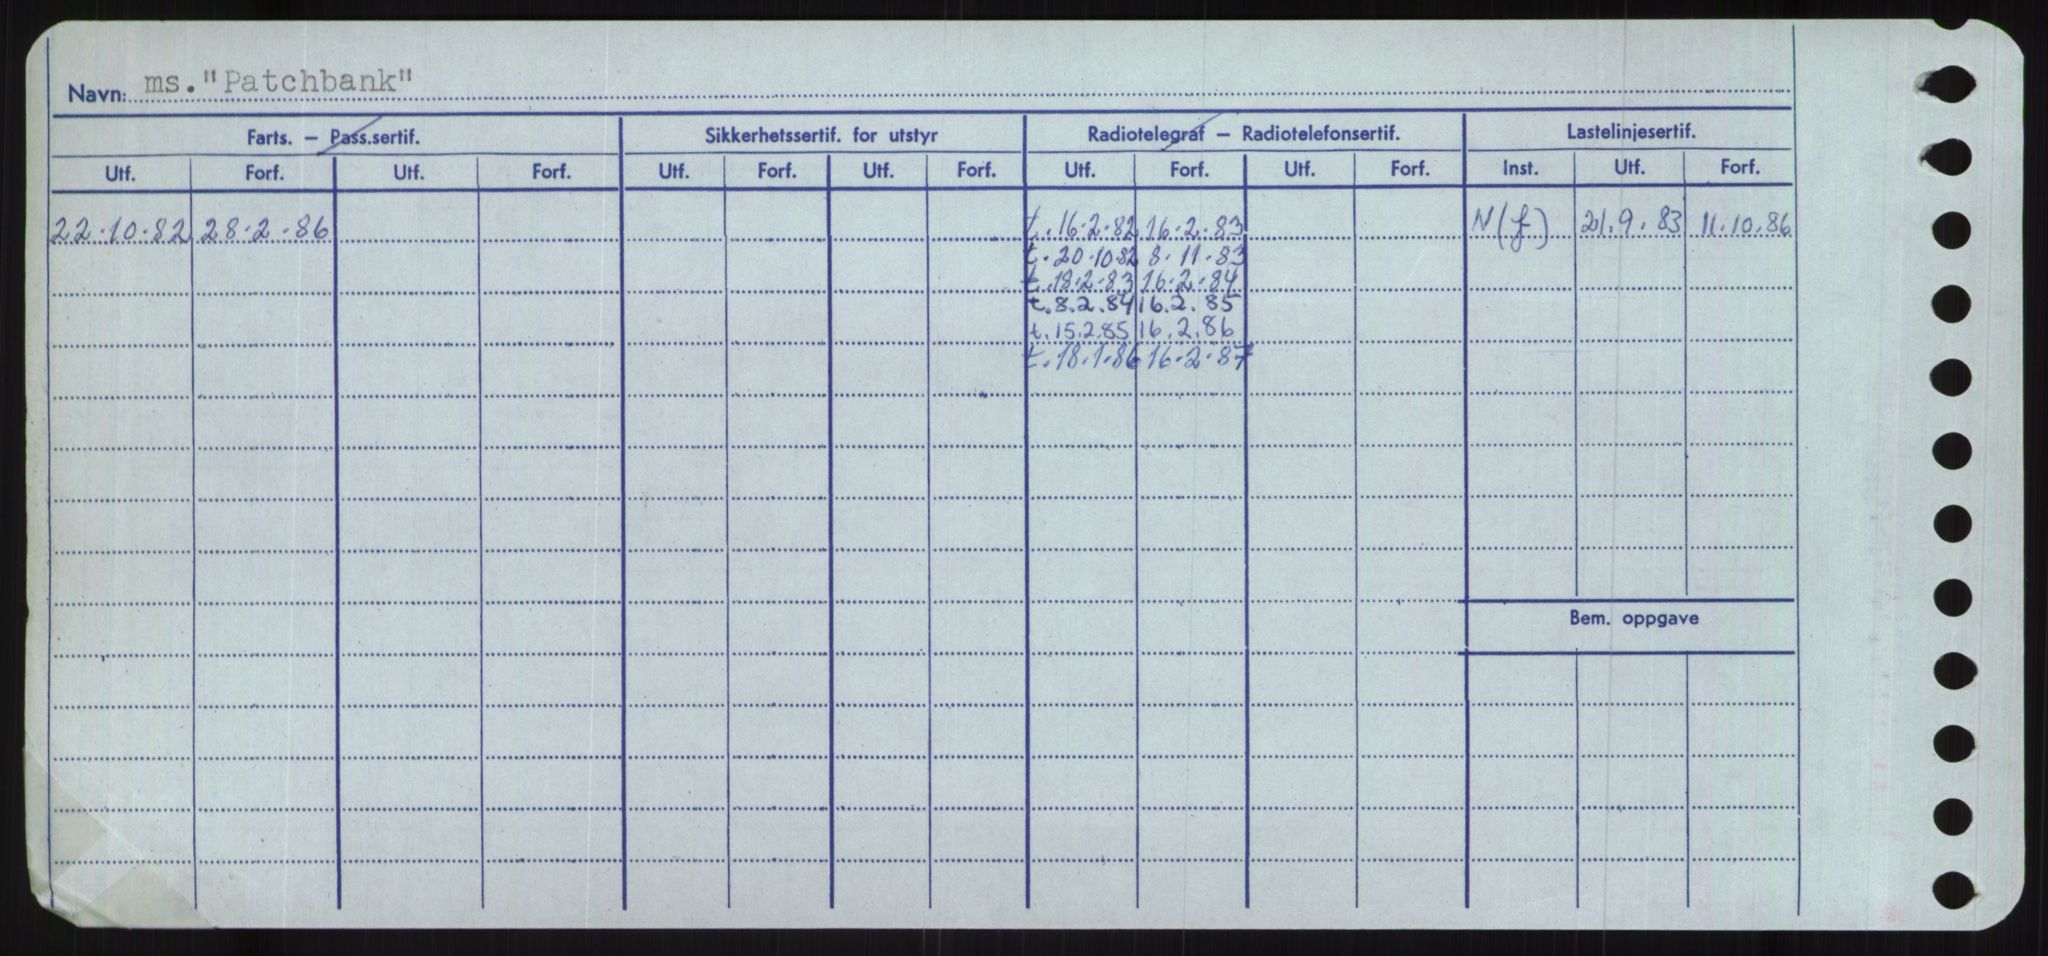 Navn: ms. "Patchbank"
Farts. – Pass.sertif. Sikkerhetssertif. for utstyr Radiotelegraf – Radiotelefonsertif. Lastelinjesertif.
Utf. Forf. Utf. Forf. Utf. Forf. Utf. Forf. Utf. Forf. Utf. Forf. Inst. Utf. Forf.
22.10.82 28.2.86 t.16.2.82 16.2.83 N(f) 21.9.83 11.10.86
t.20.10.82 8.11.83
t.18.2.83 16.2.84
t.8.2.84 16.2.85
t.15.2.85 16.2.86
t.18.1.86 16.2.87
Bem. oppgave